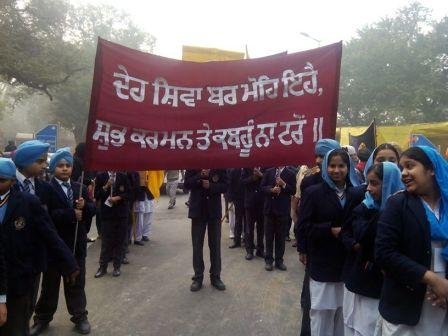 ਦੇਹ ਸਿਵਾ ਬਰ ਮੋਹਿ ਇਹੈ,
ਸੁਭ ਕਰਮਨ ਤੇ ਕਬਹੂੰ ਨਾ ਟਰੋਂ ॥